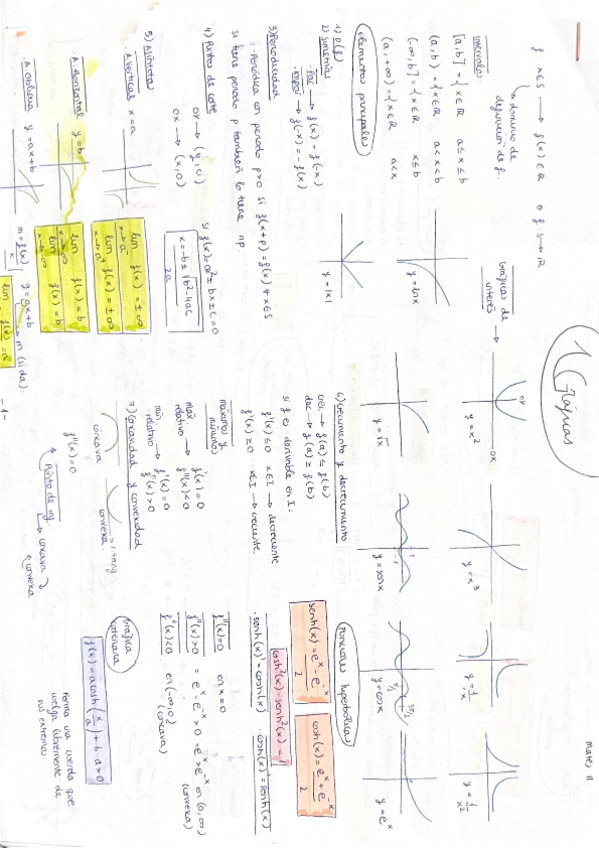 Mates II
1. Gráficas
f: x∈S → f(x)∈ℝ o f: S→ℝ
dominio de
definición de f.
Intervalos
[a,b] = {x∈ℝ a≤x≤b
(a,b) = {x∈ℝ a<x<b
(-∞,b] = {x∈ℝ x≤b
(a,+∞) = {x∈ℝ a<x
Gráficas de
interés →
OY
OX
y=x²
y=x³
y=1/x
y=1/x²
y=lnx
y=√x
y=senx
y=cosx
π/2
3π/2
y=e^x
y=|x|
elementos principales
1) D(f)
2) Simetrías
· Par → f(x) = f(-x)
· impar → f(-x) = -f(x)
3) Periodicidad
· Periódica con periodo p>0 si f(x+p) = f(x) ∀x∈S
Si tiene periodo p también lo tiene np.
4) Puntos de corte
OY → (y,0)
OX → (x,0)
si f(x) = ax² ± bx ± c = 0
x = -b ± √b²-4ac
2a
5) Asíntota
· A. Vertical x=a
lim f(x) = ±∞
x→a⁻
lim f(x) = ±∞
x→a⁺
· A. Horizontal y=b
lim f(x) = b
x→∞
lim f(x) = b
x→-∞
· A. Oblicua y=ax+b
m = f(x)
x
y=ax+b
→ m (si da).
lim f(x) = a
-1-
6) Crecimiento y decrecimiento
crec → f(a) ≤ f(b)
dec → f(a) ≥ f(b)
si f es derivable en I:
f'(x) ≤ 0 x∈I → decreciente
f'(x) ≥ 0 x∈I → creciente
máximos y
mínimos
máx. relativo → f'(x) = 0
f''(x) < 0
mín. relativo → f'(x) = 0
f''(x) > 0
7) Concavidad y convexidad
cóncava
convexa
f''(x) = 0
Punto de inf. → cóncava
convexa
Funciones hiperbólicas
senh(x) = e^x - e^-x
2
cosh(x) = e^x + e^-x
2
cosh²(x) - senh²(x) = 1
· senh(x)' = cosh(x) · cosh(x)' = senh(x)
f''(x) = 0 en x = 0
f''(x) > 0 = e^x - e^-x > 0 = e^x > e^-x en (0,∞)
(convexa)
f''(x) < 0 en (-∞,0)
(cóncava)
Gráfica
catenaria
f(x) = a cosh(x/a) + b a>0
Forma una cuerda que
cuelga libremente de
sus extremos